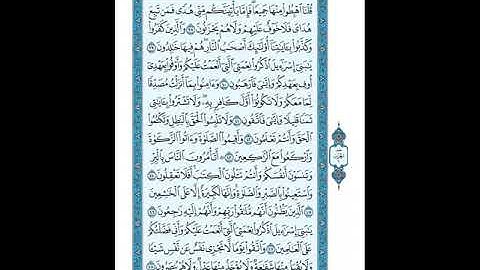 قُلْنَا ٱهْبِطُوا۟ مِنْهَا جَمِيعًا فَإِمَّا يَأْتِيَنَّكُم مِّنِّى هُدًى فَمَن تَبِعَ
هُدَاىَ فَلَا خَوْفٌ عَلَيْهِمْ وَلَا هُمْ يَحْزَنُونَ ٣٨ وَٱلَّذِينَ كَفَرُوا۟
وَكَذَّبُوا۟ بِـَٔايَـٰتِنَآ أُو۟لَـٰٓئِكَ أَصْحَـٰبُ ٱلنَّارِ هُمْ فِيهَا خَـٰلِدُونَ ٣٩
يَـٰبَنِىٓ إِسْرَٰٓءِيلَ ٱذْكُرُوا۟ نِعْمَتِىَ ٱلَّتِىٓ أَنْعَمْتُ عَلَيْكُمْ وَأَوْفُوا۟ بِعَهْدِىٓ
أُوفِ بِعَهْدِكُمْ وَإِيَّـٰىَ فَٱرْهَبُونِ ٤٠ وَءَامِنُوا۟ بِمَآ أَنزَلْتُ مُصَدِّقًا
لِّمَا مَعَكُمْ وَلَا تَكُونُوٓا۟ أَوَّلَ كَافِرٍۭ بِهِۦ وَلَا تَشْتَرُوا۟ بِـَٔايَـٰتِى
ثَمَنًا قَلِيلًا وَإِيَّـٰىَ فَٱتَّقُونِ ٤١ وَلَا تَلْبِسُوا۟ ٱلْحَقَّ بِٱلْبَـٰطِلِ وَتَكْتُمُوا۟
ٱلْحَقَّ وَأَنتُمْ تَعْلَمُونَ ٤٢ وَأَقِيمُوا۟ ٱلصَّلَوٰةَ وَءَاتُوا۟ ٱلزَّكَوٰةَ
وَٱرْكَعُوا۟ مَعَ ٱلرَّٰكِعِينَ ٤٣ أَتَأْمُرُونَ ٱلنَّاسَ بِٱلْبِرِّ
وَتَنسَوْنَ أَنفُسَكُمْ وَأَنتُمْ تَتْلُونَ ٱلْكِتَـٰبَ أَفَلَا تَعْقِلُونَ ٤٤
وَٱسْتَعِينُوا۟ بِٱلصَّبْرِ وَٱلصَّلَوٰةِ وَإِنَّهَا لَكَبِيرَةٌ إِلَّا عَلَى ٱلْخَـٰشِعِينَ
٤٥ ٱلَّذِينَ يَظُنُّونَ أَنَّهُم مُّلَـٰقُوا۟ رَبِّهِمْ وَأَنَّهُمْ إِلَيْهِ رَٰجِعُونَ ٤٦
يَـٰبَنِىٓ إِسْرَٰٓءِيلَ ٱذْكُرُوا۟ نِعْمَتِىَ ٱلَّتِىٓ أَنْعَمْتُ عَلَيْكُمْ وَأَنِّى فَضَّلْتُكُمْ
عَلَى ٱلْعَـٰلَمِينَ ٤٧ وَٱتَّقُوا۟ يَوْمًا لَّا تَجْزِى نَفْسٌ عَن نَّفْسٍ شَيْـًٔا
وَلَا يُقْبَلُ مِنْهَا شَفَـٰعَةٌ وَلَا يُؤْخَذُ مِنْهَا عَدْلٌ وَلَا هُمْ يُنصَرُونَ ٤٨